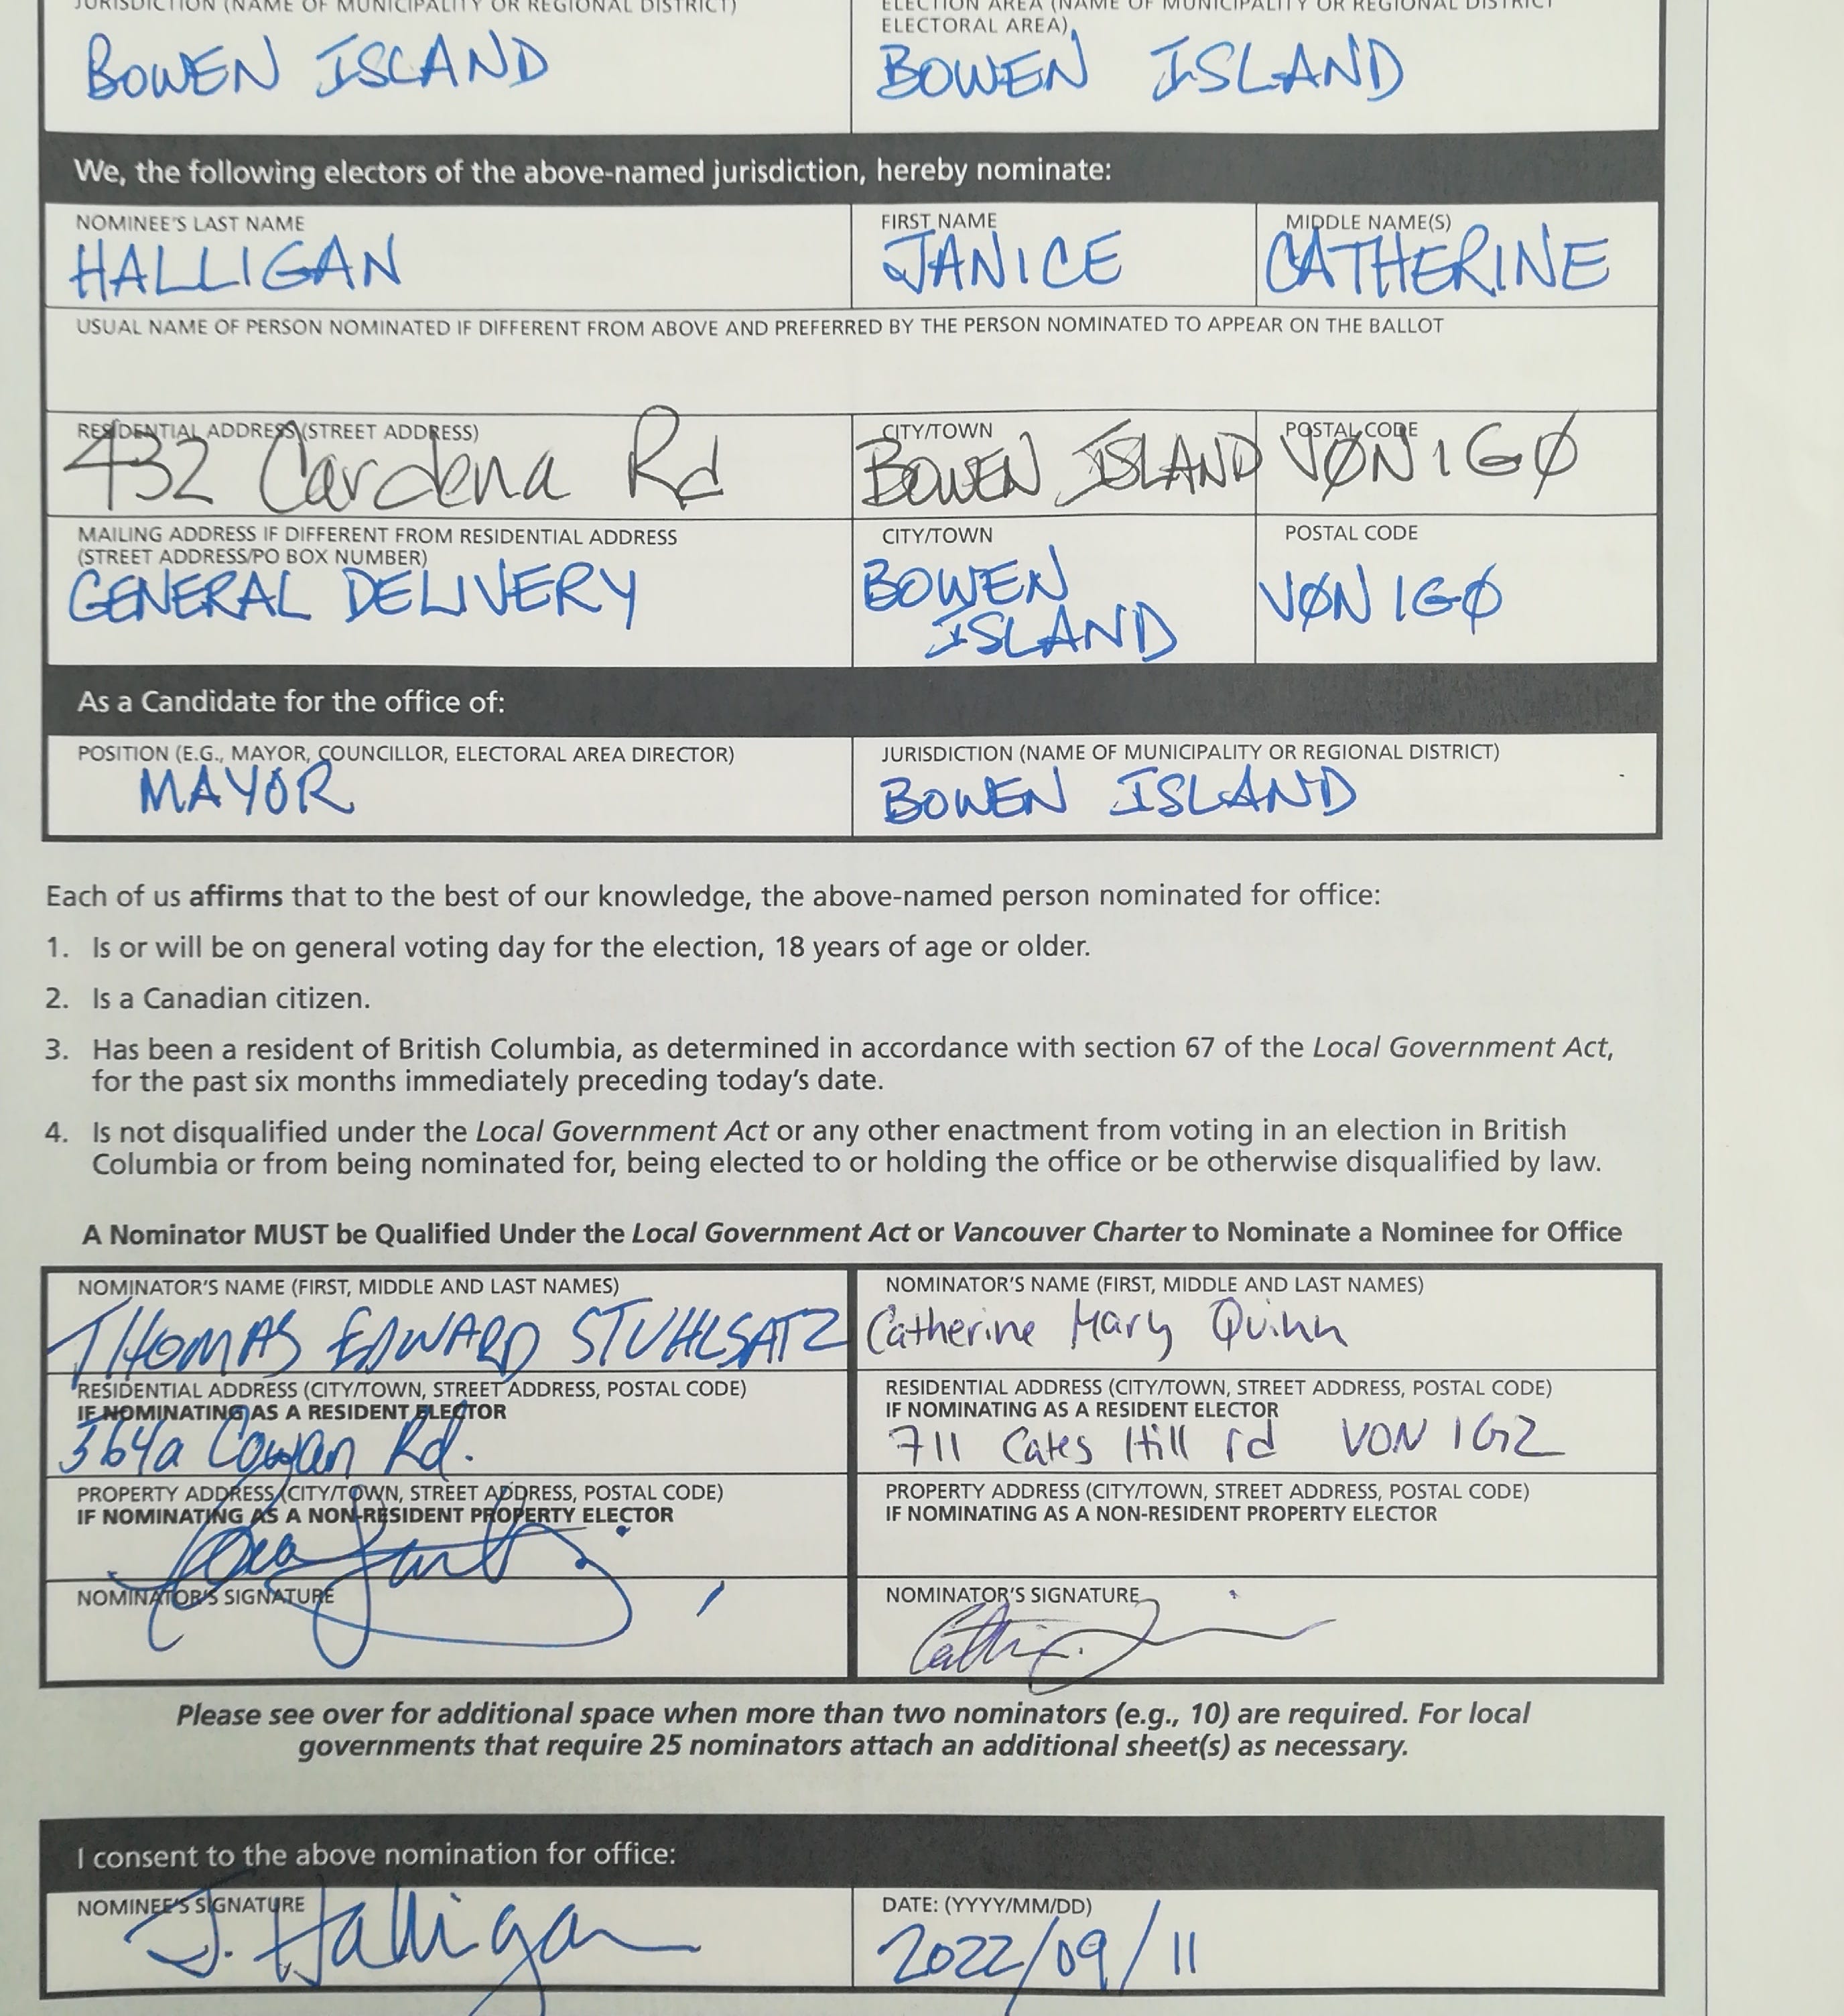 JURISDICTION (NAME OF MUNICIPALITY OR REGIONAL DISTRICT)
BOWEN ISLAND
ELECTION AREA (NAME OF MUNICIPALITY OR REGIONAL DISTRICT
ELECTORAL AREA)
BOWEN ISLAND
We, the following electors of the above-named jurisdiction, hereby nominate:
NOMINEE'S LAST NAME
HALLIGAN
FIRST NAME
JANICE
MIDDLE NAME(S)
CATHERINE
USUAL NAME OF PERSON NOMINATED IF DIFFERENT FROM ABOVE AND PREFERRED BY THE PERSON NOMINATED TO APPEAR ON THE BALLOT
RESIDENTIAL ADDRESS (STREET ADDRESS)
432 Cardena Rd
CITY/TOWN
BOWEN ISLAND
POSTAL CODE
VØN 1GØ
MAILING ADDRESS IF DIFFERENT FROM RESIDENTIAL ADDRESS
(STREET ADDRESS/PO BOX NUMBER)
GENERAL DELIVERY
CITY/TOWN
BOWEN
ISLAND
POSTAL CODE
VØN 1GØ
As a Candidate for the office of:
POSITION (E.G., MAYOR, COUNCILLOR, ELECTORAL AREA DIRECTOR)
MAYOR
JURISDICTION (NAME OF MUNICIPALITY OR REGIONAL DISTRICT)
BOWEN ISLAND
Each of us affirms that to the best of our knowledge, the above-named person nominated for office:
1. Is or will be on general voting day for the election, 18 years of age or older.
2. Is a Canadian citizen.
3. Has been a resident of British Columbia, as determined in accordance with section 67 of the Local Government Act,
for the past six months immediately preceding today's date.
4. Is not disqualified under the Local Government Act or any other enactment from voting in an election in British
Columbia or from being nominated for, being elected to or holding the office or be otherwise disqualified by law.
A Nominator MUST be Qualified Under the Local Government Act or Vancouver Charter to Nominate a Nominee for Office
NOMINATOR'S NAME (FIRST, MIDDLE AND LAST NAMES)
THOMAS EDWARD STUHLSATZ
RESIDENTIAL ADDRESS (CITY/TOWN, STREET ADDRESS, POSTAL CODE)
IF NOMINATING AS A RESIDENT ELECTOR
364a Cowan Rd.
PROPERTY ADDRESS (CITY/TOWN, STREET ADDRESS, POSTAL CODE)
IF NOMINATING AS A NON-RESIDENT PROPERTY ELECTOR
NOMINATOR'S SIGNATURE
NOMINATOR'S NAME (FIRST, MIDDLE AND LAST NAMES)
Catherine Mary Quinn
RESIDENTIAL ADDRESS (CITY/TOWN, STREET ADDRESS, POSTAL CODE)
IF NOMINATING AS A RESIDENT ELECTOR
711 Cates Hill rd VON 1G2
PROPERTY ADDRESS (CITY/TOWN, STREET ADDRESS, POSTAL CODE)
IF NOMINATING AS A NON-RESIDENT PROPERTY ELECTOR
NOMINATOR'S SIGNATURE
Please see over for additional space when more than two nominators (e.g., 10) are required. For local
governments that require 25 nominators attach an additional sheet(s) as necessary.
I consent to the above nomination for office:
NOMINEE'S SIGNATURE
J. Halligan
DATE: (YYYY/MM/DD)
2022/09/11